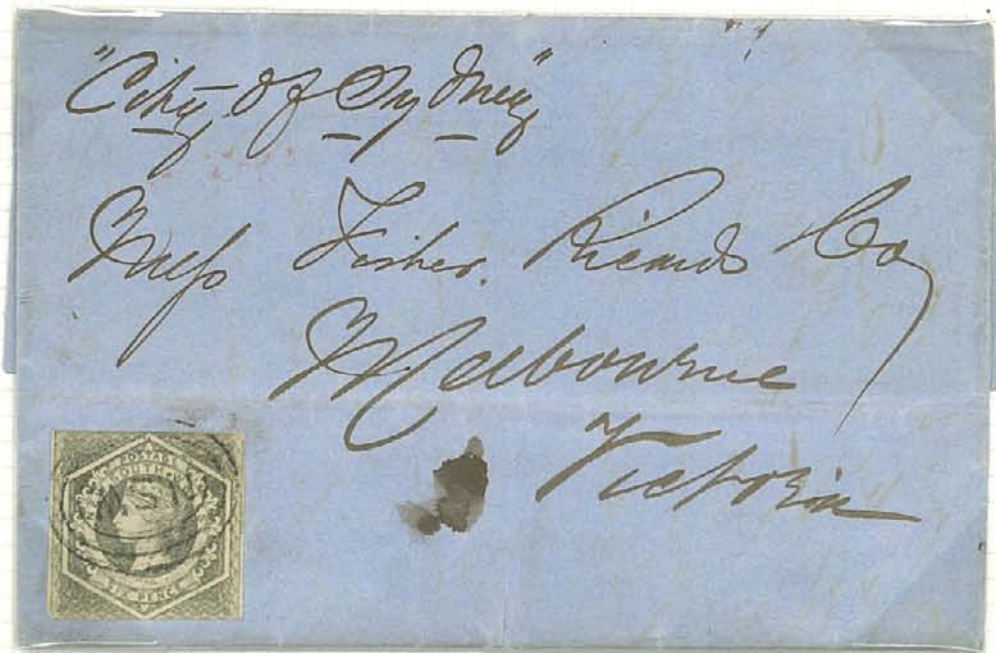 "City of Sydney"
Mess Fisher. Ricards & Co
Melbourne
Victoria
POSTAGE
SOUTH
SIX PENCE